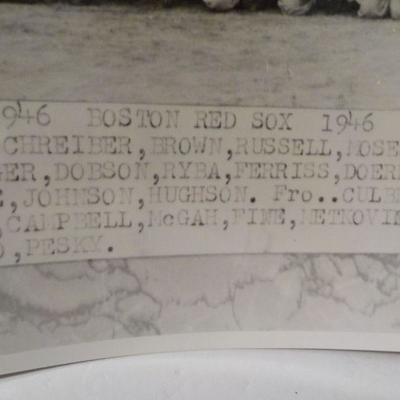 946 BOSTON RED SOX 1946
CHREIBER,BROWN,RUSSELL,MOSE
GER,DOBSON,RYBA,FERRISS,DOER
,JOHNSON,HUGHSON. Fro..CULB
,CAMPBELL,McGAH,FINE,METKOVI
),PESKY.